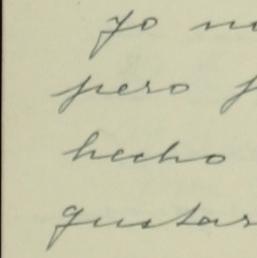 yo
pero
hecho
gustar